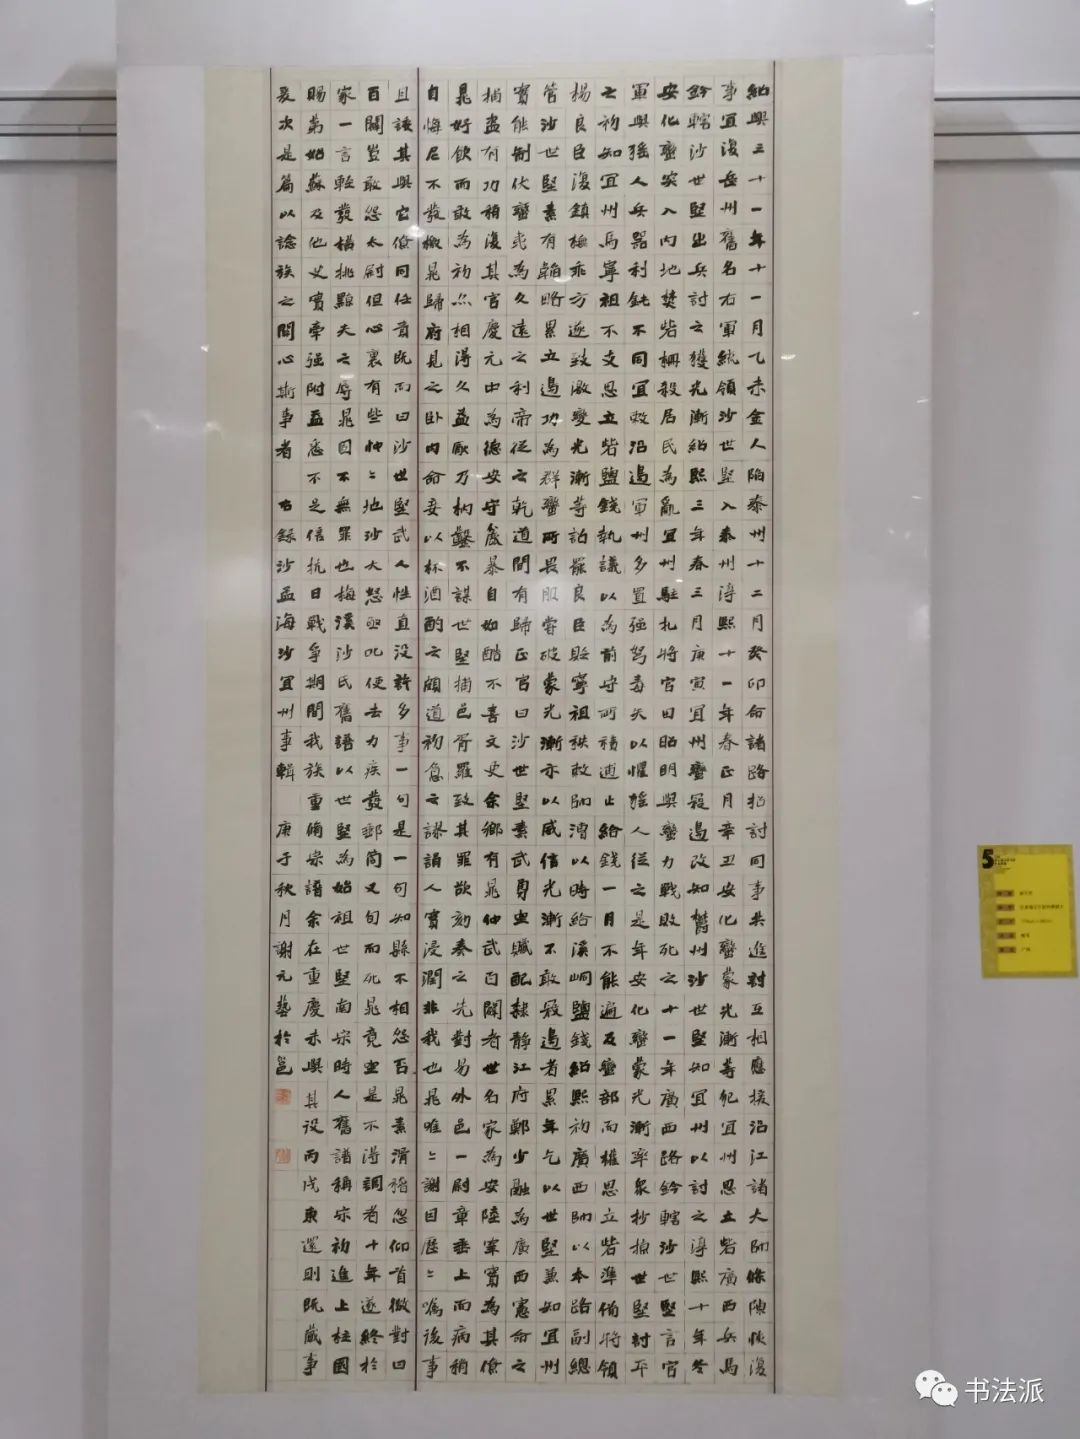 紹興三十一年十一月乙未金人陷泰州十二月癸卯命諸路招討司事共進討互相應援沿江諸大帥條陳恢復
事宜復岳州舊名右軍統領沙世堅入泰州淳熙十一年春正月辛丑安化蠻蒙光漸等犯宜州思立砦廣西兵馬
鈐轄沙世堅出兵討之獲光漸紹熙三年春三月庚寅宜州蠻寇邊改知鬱州沙世堅知宜州以討之淳熙十年冬
安化蠻突入内地焚砦柵殺居民為亂宜州駐札將官田昭明與蠻力戰敗死之十一年廣西路鈐轄沙世堅言官
軍與猺人兵器利鈍不同宜敕沿邊軍州多置強弩毒矢以懼猺人從之是年安化蠻蒙光漸率衆抄掠世堅討平
之初知宜州馬寧祖不支思立砦鹽錢執議以為前守所積逋止給錢一月不能遍及蠻部而權思立砦準備將領
楊良臣復鎮撫乖方遂致激變光漸等詣罷良臣貶寧祖秩敕帥漕以時給溪峒鹽錢紹熙初廣西帥以本路副總
管沙世堅素有韜略累立邊功為群蠻所畏服嘗破蒙光漸亦以威信光漸不敢寇邊者累年乞以世堅兼知宜州
實能制伏蠻夷為久遠之利帝從之乾道間有歸正官曰沙世堅素武勇坐贓配隸靜江府鄭少融為廣西憲命之
捕盗有功稍復其官慶元中為德安守殘暴自如酷不喜文吏余鄉有晁仲武百闢者世名家為安陸宰實為其僚
晁好飲而敢為初亦相得久益厭乃枘鑿不謀世堅捕邑胥羅致其罪欲刻奏之先對易外邑一尉章垂上而病稍
自悔尼不發檄晁歸府見之卧内命妾以杯酒酌之頗道初意云謬謂人實浸潤非我也晁唯〻謝因歷〻囑後事
且談其與它僚同任首既而曰沙世堅武人性直没許多事一句是一句知縣不相怨否晁素滑稽忽仰首微對曰
百闢豈敢怨太尉但心裏有些忡〻地沙大怒亟叱使去力疾發郵筒又旬而死晁竟坐是不得調者十年遂終於
家一言輕發橫挑黥夫之辱晁固不無罪也梅溪沙氏舊語以世堅為始祖世堅南宋時人舊譜稱宋初進上柱國
賜第姑蘇及他史實牽強附益悉不足信抗日戰爭期間我族重脩宗譜余在重慶未與其役丙戌東還則既蕆事
爰次是篇以諗族之關心斯事者 右錄沙孟海沙宜州事輯 庚子秋月謝元藝於邕
5
书法派